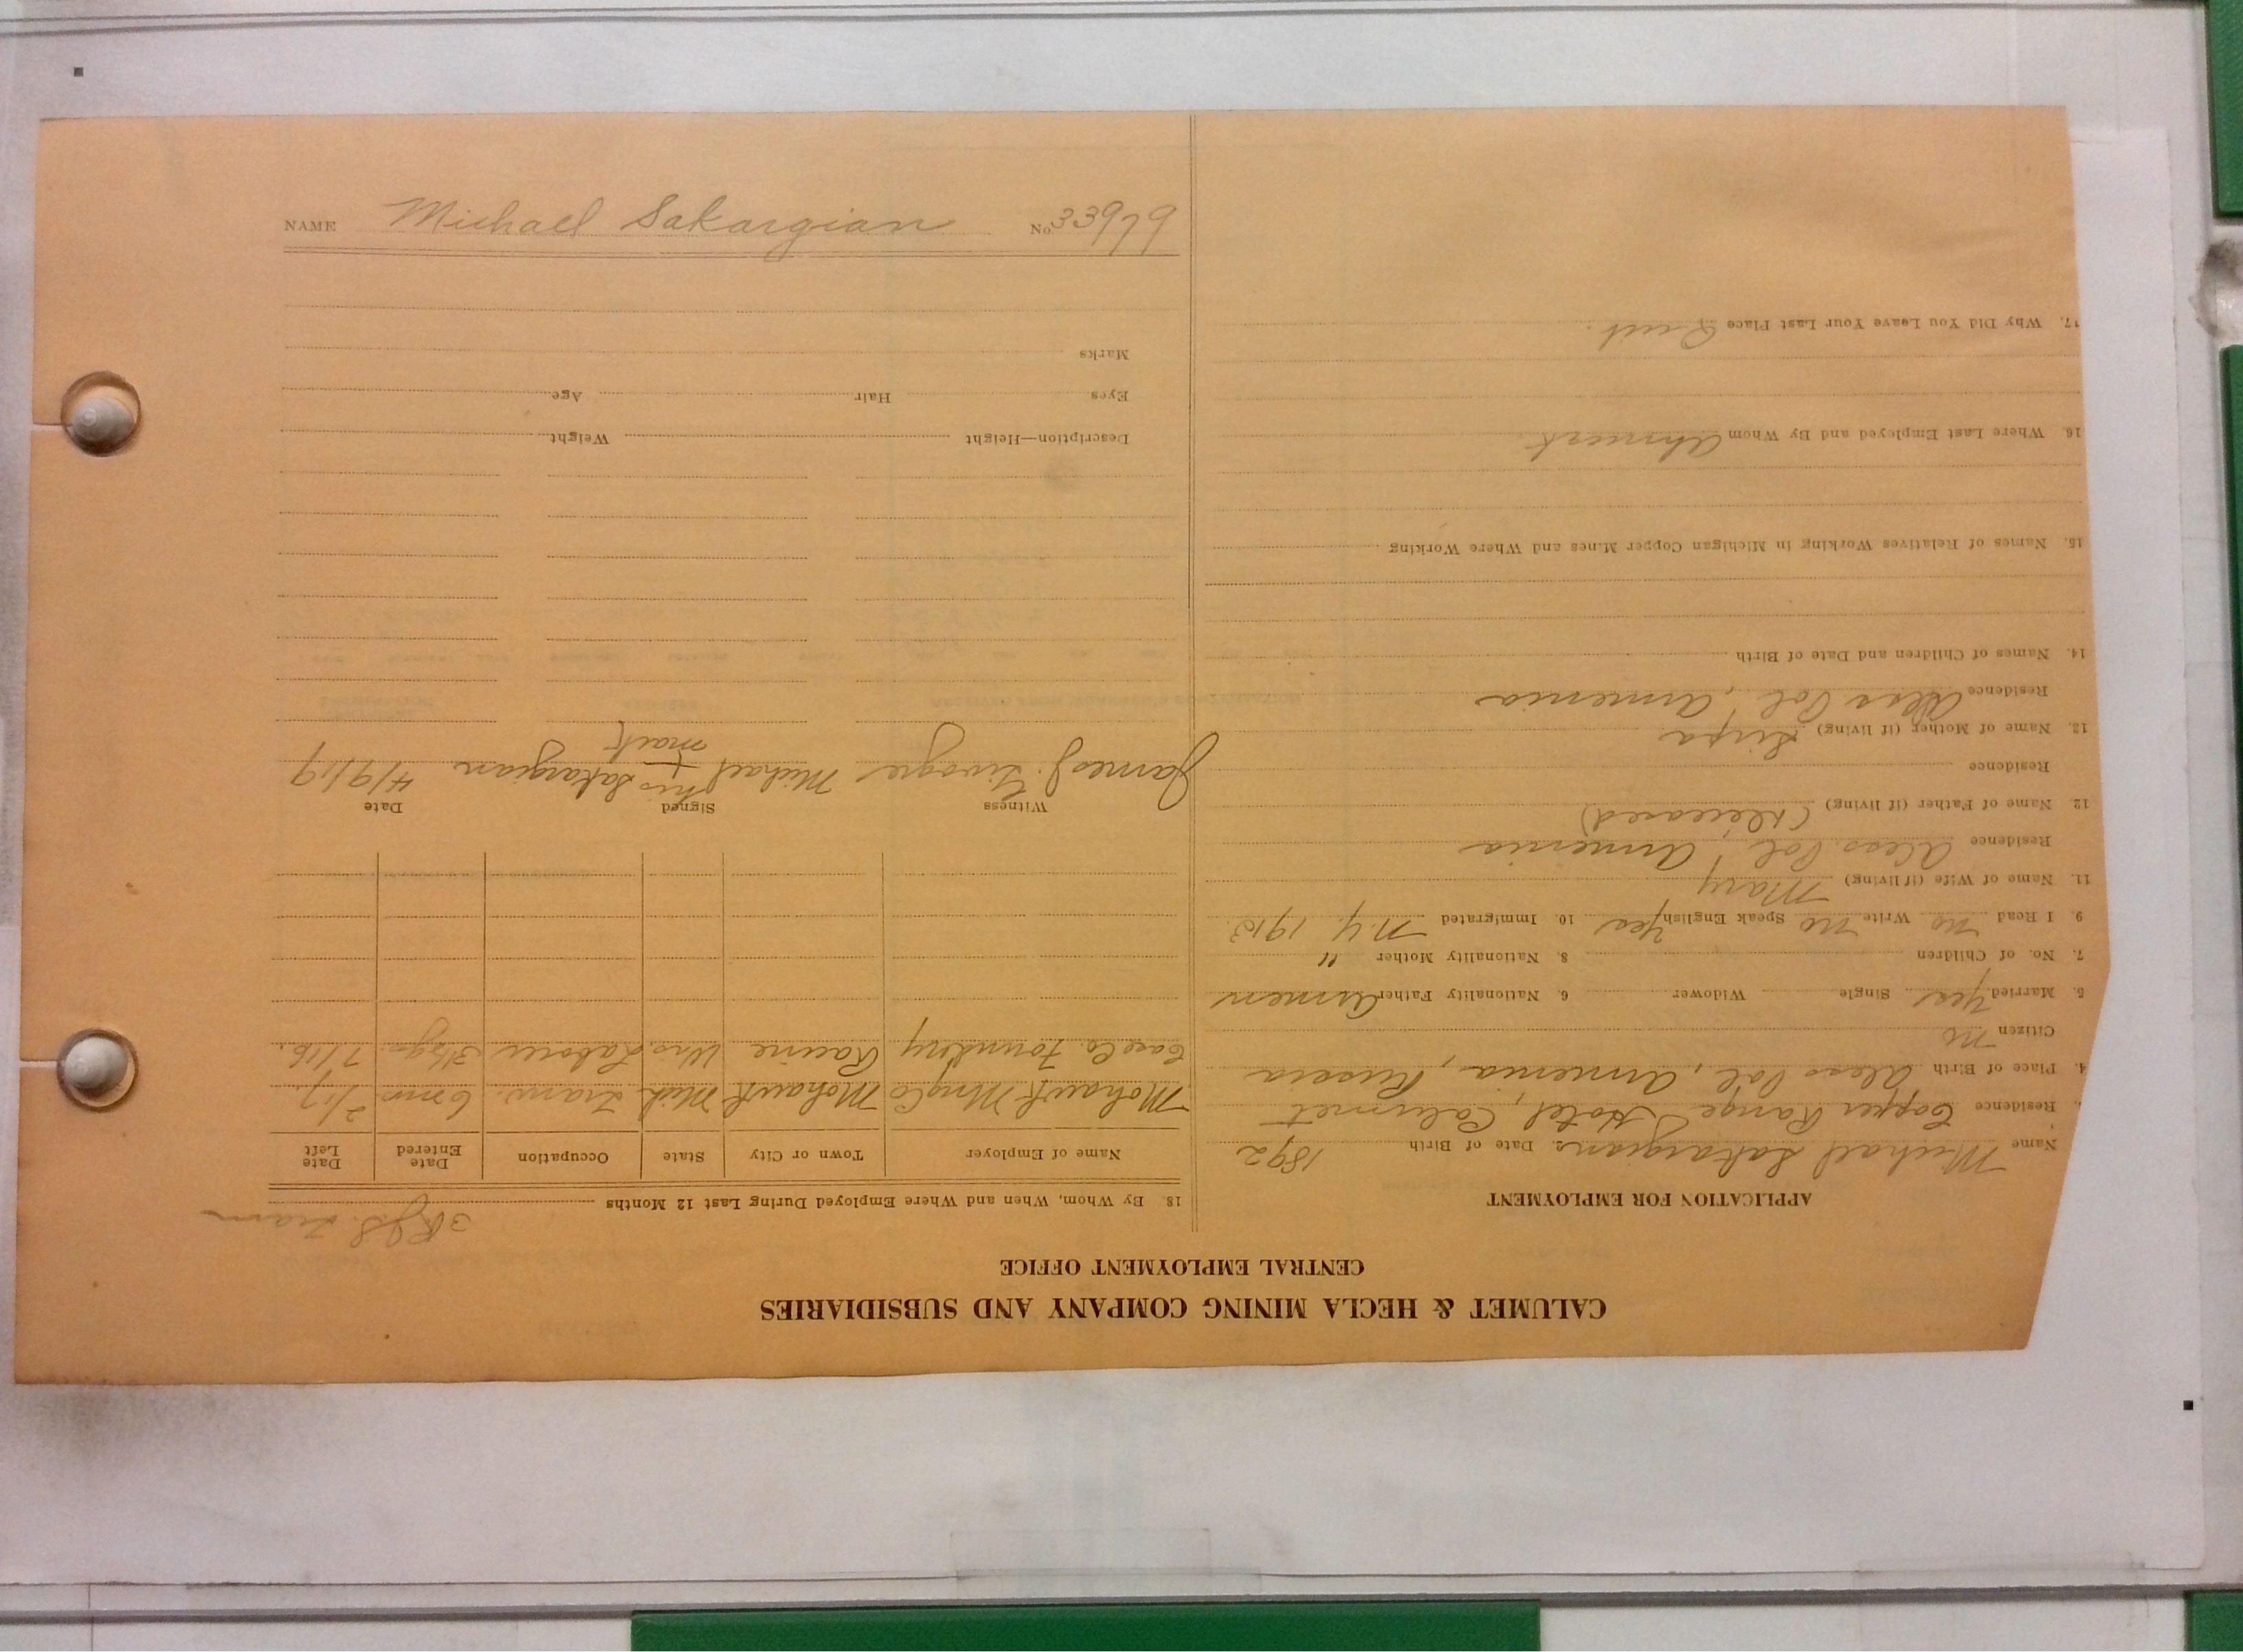 CALUMET & HECLA MINING COMPANY AND SUBSIDIARIES
CENTRAL EMPLOYMENT OFFICE
APPLICATION FOR EMPLOYMENT
Name Michael Sakargian 2. Date of Birth 1892
Residence Copper Range Hotel, Calumet
4. Place of Birth Aless Pol, Armenia, Russia
Citizen no
5. Married yes Single Widower 6. Nationality Father Armen
7. No. of Children 8. Nationality Mother "
9. I Read no Write no Speak English yes 10. Immigrated N.Y. 1913.
11. Name of Wife (if living) Mary
Residence Aless Pol, Armenia
12. Name of Father (if living) (deceased)
Residence
12. Name of Mother (if living) Sirpa
Residence Aless Pol, Armenia
14. Names of Children and Date of Birth
15. Names of Relatives Working in Michigan Copper Mines and Where Working
16. Where Last Employed and By Whom Ahmeek
17. Why Did You Leave Your Last Place Quit.
18. By Whom, When and Where Employed During Last 12 Months
Name of Employer Town or City State Occupation Date Entered Date Left
Mohawk Mng Co Mohawk Mich Tram. 6 mo. 2/17.
Case Co. Foundery Racine Wis. Laborer 3½ yr. 7/16.
Witness Signed Date
James J. Michael his Sakargian 4/9/17
mark
Description—Height Weight
Eyes Hair Age
Marks
NAME Michael Sakargian No. 33979